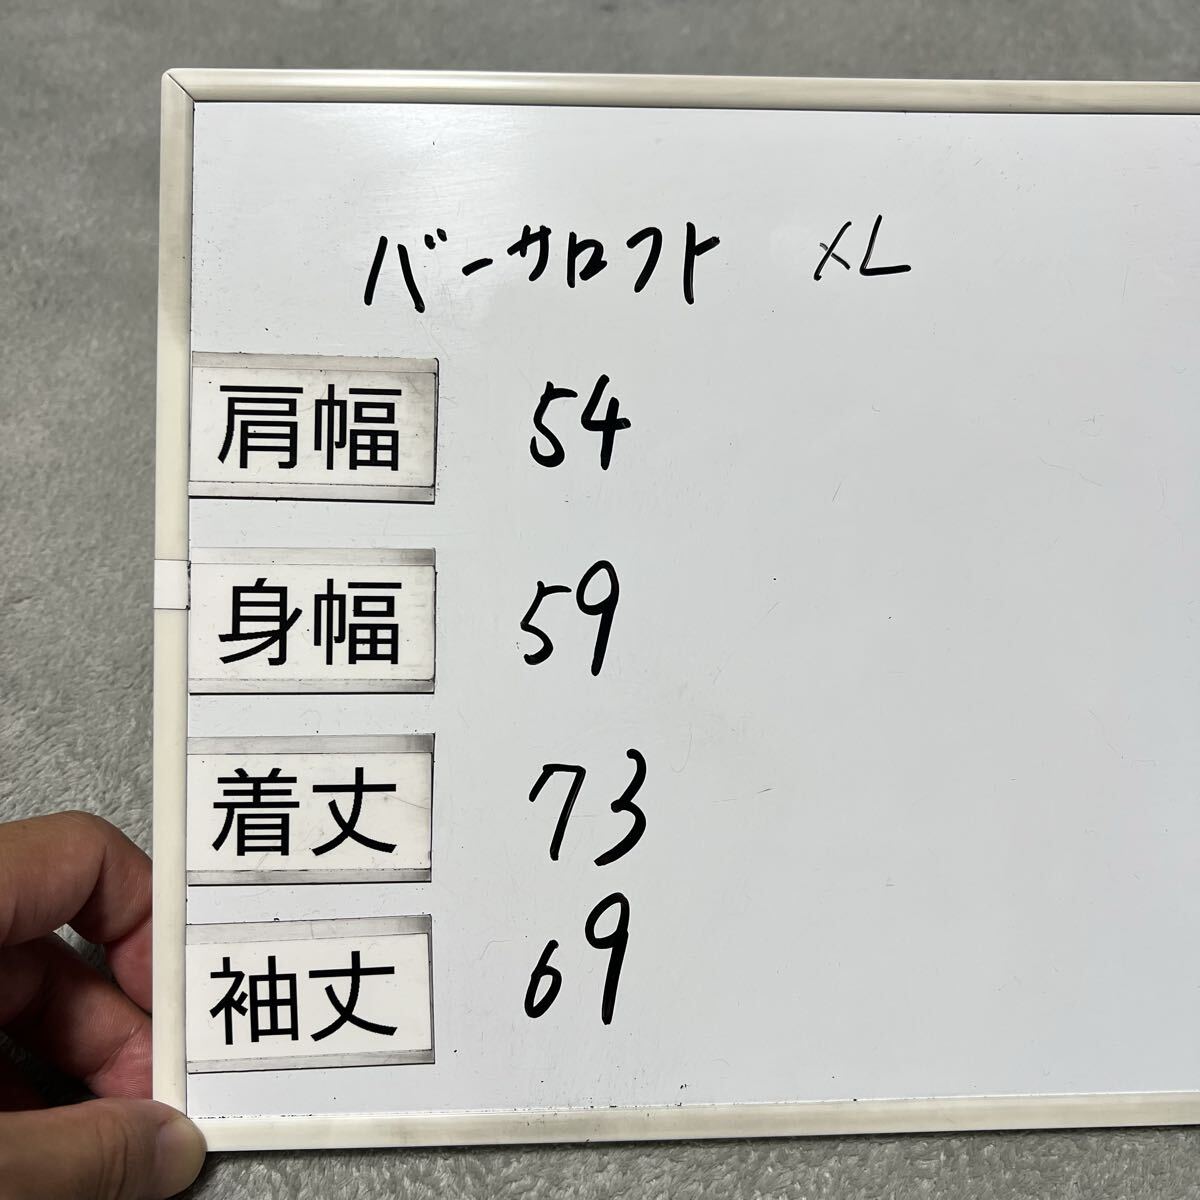 バーサロフト XL
肩幅 54
身幅 59
着丈 73
袖丈 69